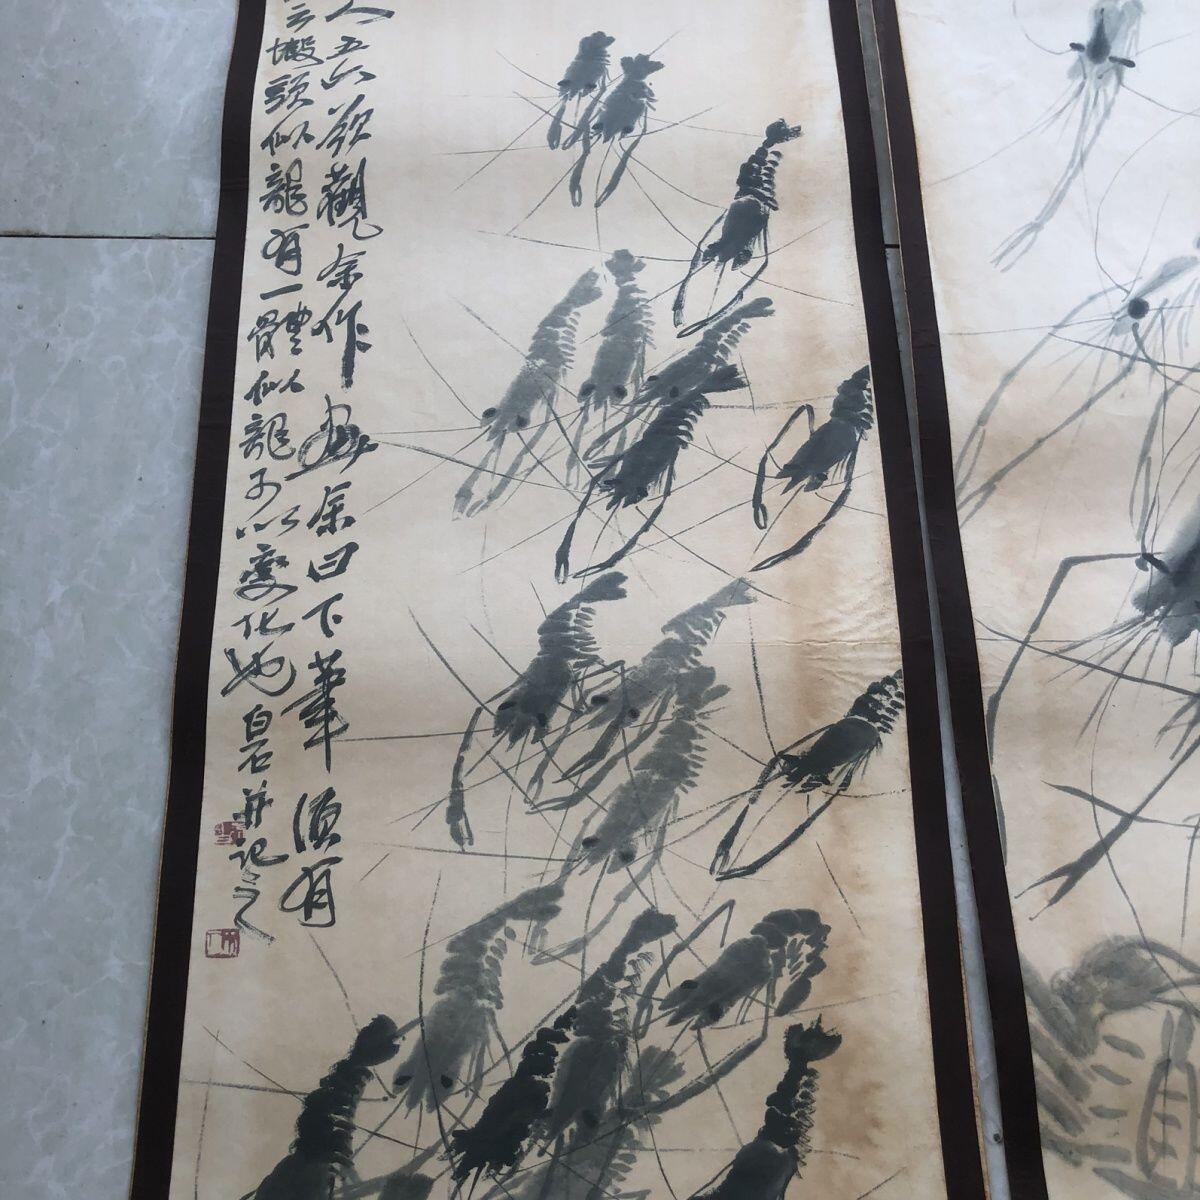 人五六欲觀余作畫余曰下筆須有
云蝦頭似龍有一體似龍可以變化也白石并記之